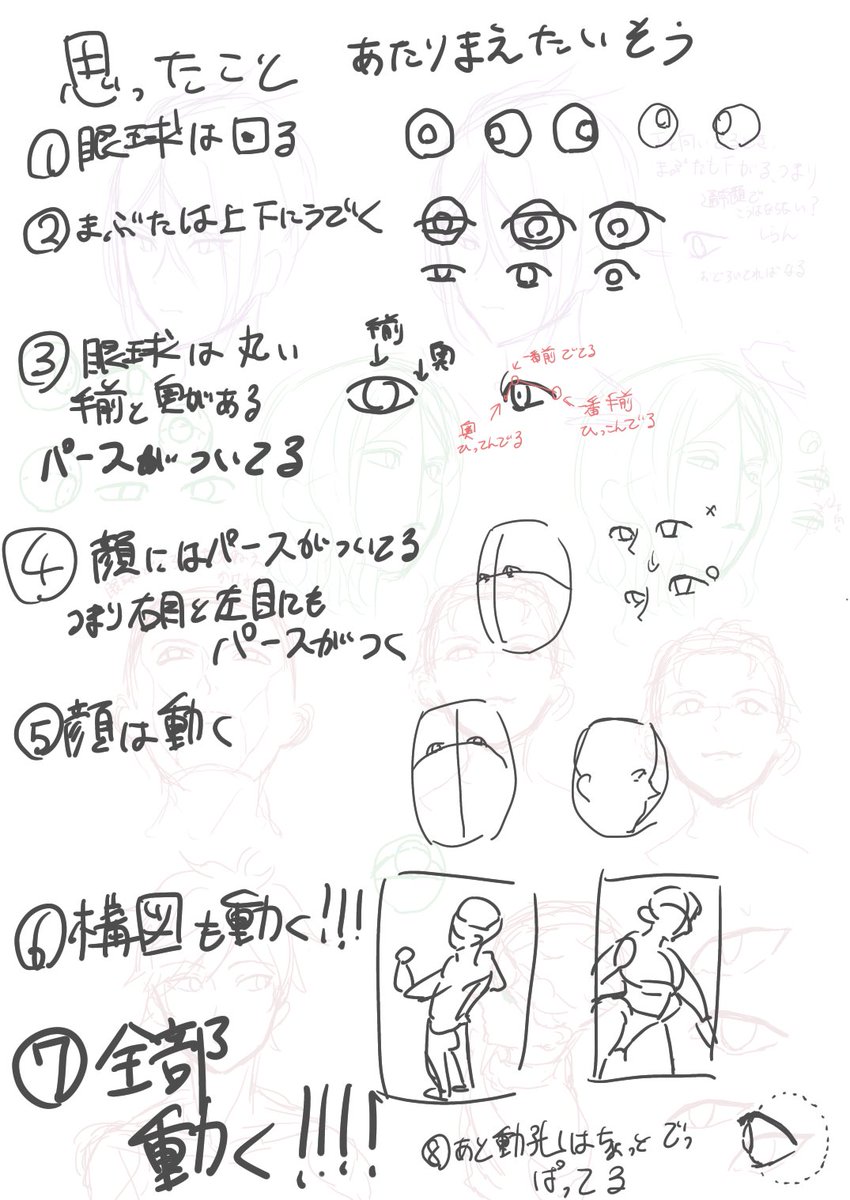 思ったこと あたりまえたいそう
①眼球は回る
②まぶたは上下にうごく
③眼球は丸い
手前と奥がある
パースがついてる
手前
奥
一番前でてる
奥
ひっこんでる
一番手前
ひっこんでる
④顔にはパースがついてる
つまり右目と左目にも
パースがつく
⑤顔は動く
⑥構図も動く!!!
⑦全部
動く!!!!
⑧あと動孔はちょっとでっ
ぱってる
まぶたも下がる、つまり
しらん
おどろいてればなる